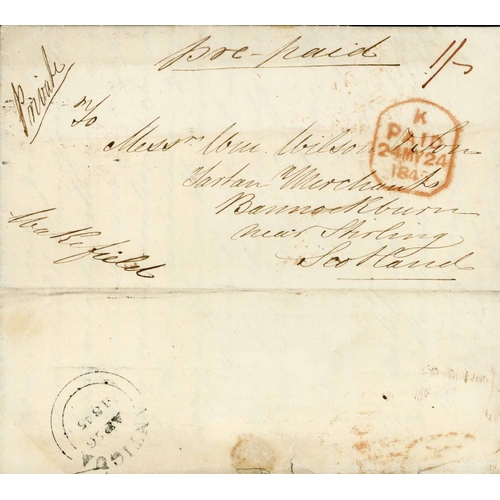 Pre-paid
1/-
Private
To
Messrs Wm Wilson & Son
Tartan Merchants
Bannockburn
near Stirling
Scotland
Wakefield
K
PAID
24MY24
1845
ANTIGUA
AP26
1845